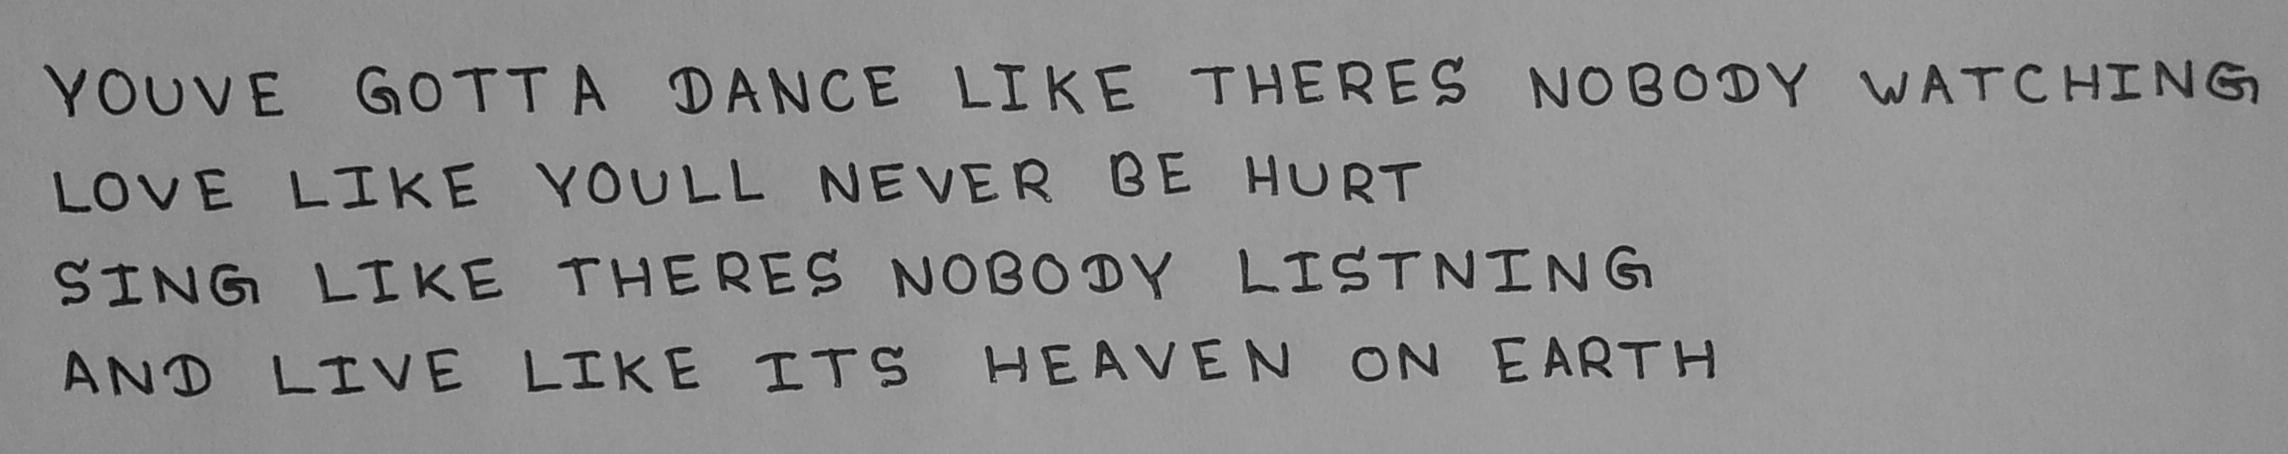 YOUVE GOTTA DANCE LIKE THERES NOBODY WATCHING
LOVE LIKE YOULL NEVER BE HURT
SING LIKE THERES NOBODY LISTNING
AND LIVE LIKE ITS HEAVEN ON EARTH